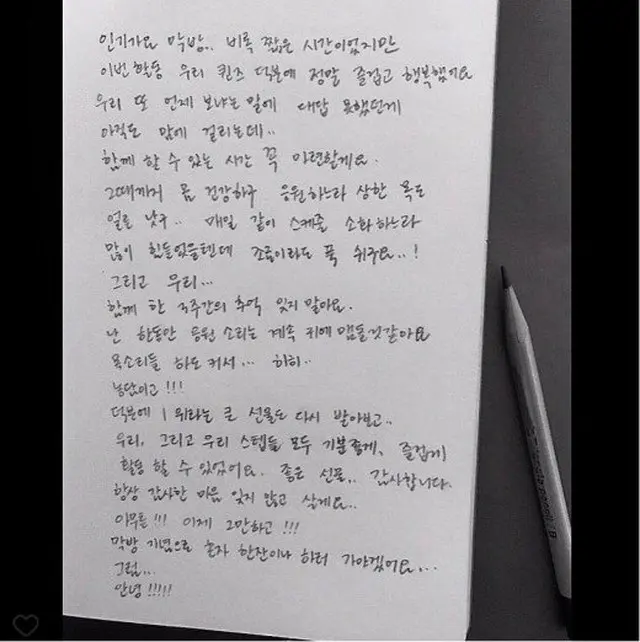 인기가요 막방.. 비록 짧은 시간이었지만
이번활동 우리 퀸즈 덕분에 정말 즐겁고 행복했어요
우리 또 언제 보냐는 말에 대답 못했던게
아직도 맘에 걸리는데..
함께 할 수 있는 시간 꼭 마련할게요.
그때까지 몸 건강하구 응원하느라 상한 목도
얼른 낫구.. 매일 같이 스케줄 소화하느라
많이 힘들었을텐데 조금이라도 푹 쉬구요..!
그리고 우리...
함께 한 3주간의 추억 잊지 말아요.
난 한동안 응원 소리는 계속 귀에 맴돌것같아요
목소리들 하도 커서... 히히..
농담이고!!!
덕분에 1위라는 큰 선물도 다시 받아보고..
우리, 그리고 우리 스텝들 모두 기분좋게, 즐겁게
활동 할 수 있었어요. 좋은 선물.. 감사합니다.
항상 감사한 마음 잊지 않고 살게요..
아무튼!!! 이제 그만하고!!!
막방 기념으로 혼자 한잔이나 하러 가야겠어요...
그럼...
안녕!!!!!